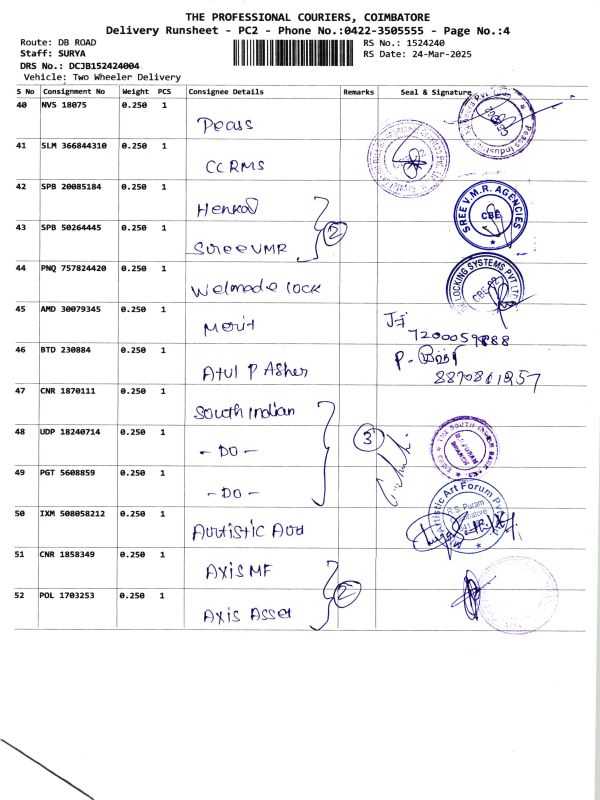 THE PROFESSIONAL COURIERS, COIMBATORE
Delivery Runsheet - PC2 - Phone No.:0422-3505555 - Page No.:4
Route: DB ROAD
RS No.: 1524240
Staff: SURYA
RS Date: 24-Mar-2025
DRS No.: DCJB152424004
Vehicle: Two Wheeler Delivery
S No Consignment No Weight PCS Consignee Details Remarks Seal & Signature
40 NVS 18075 0.250 1 Peass
41 SLM 366844310 0.250 1 CCRMS
42 SPB 20085184 0.250 1 Henkal
SREE V.M.R. AGENCIES CBE
43 SPB 50264445 0.250 1 SureeVMR 2
44 PNQ 757824420 0.250 1 Welmade lock
LOCKING SYSTEMS PVT LTD CBE
45 AMD 30079345 0.250 1 Merit
7200059888
46 BTD 230884 0.250 1 Atul P Asher
47 CNR 1870111 0.250 1 South Indian
48 UDP 18240714 0.250 1 - DO - 3
THE SOUTH INDIAN BANK
49 PGT 5608859 0.250 1 - DO -
50 IXM 508058212 0.250 1 Autistic Aud
Artistic Art Forum Pvt R.S. Puram
51 CNR 1858349 0.250 1 AXIS MF
52 POL 1703253 0.250 1 AXIS Asset 2